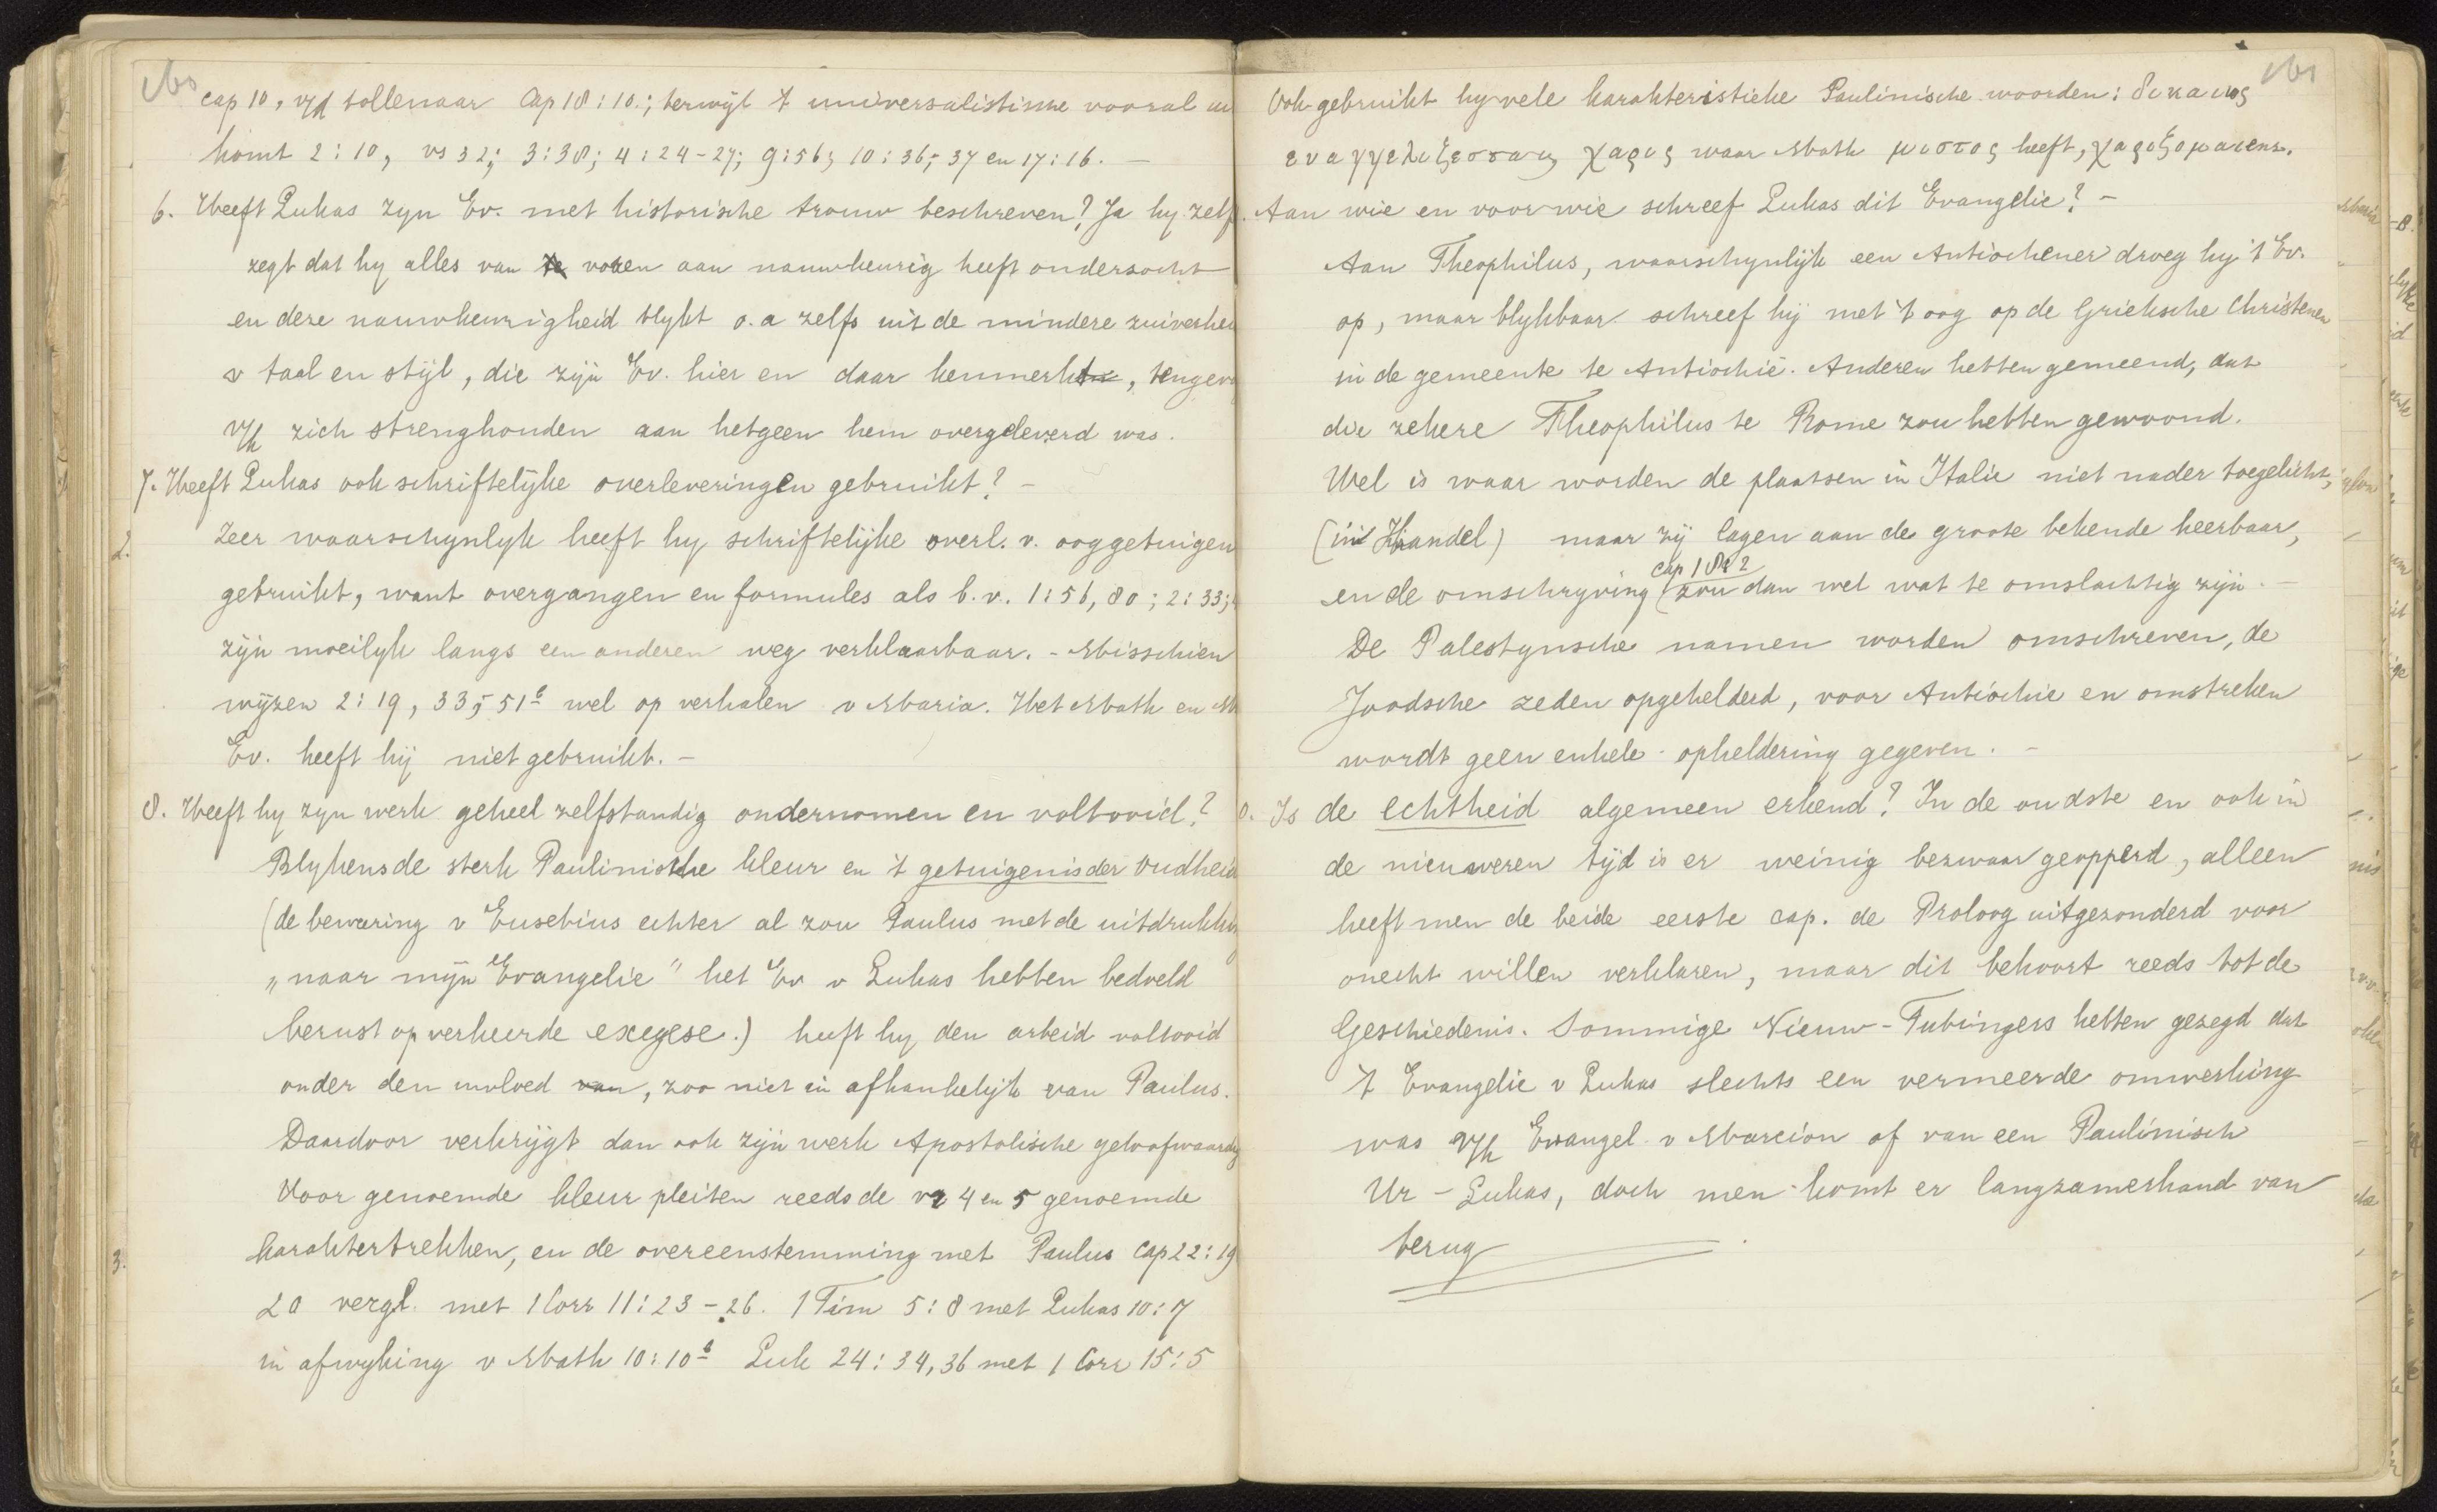 cap 10, v/d tollenaar Cap 18:10.; terwijl 't universalistische vooral
komt 2:10, vs 32; 3:38; 4:24-27; 9:56; 10:36,37 en 17:16. —
6. Heeft Lukas zyn Ev. met historische trouw beschreven? Ja hy zelf
zegt dat hy alles van voren aan nauwkeurig heeft onderzocht
en deze nauwkeurigheid blykt o.a zelfs uit de mindere zuiverhei
v taal en stijl, die zijn Ev. hier en daar kenmerkt, tengevo
v/h zich strenghouden aan hetgeen hem overgeleverd was.
7. Heeft Lukas ook schriftelyke overleveringen gebruikt? —
2. Zeer waarschynlyk heeft hy schriftelijke overl. v. ooggetuigen
gebruikt, want overgangen en formules als b.v. 1:56, 80; 2:33;
zijn moeilyk langs een anderen weg verklaarbaar. - Misschien
wijzen 2:19, 33, 51b wel op verhalen v Maria. Het Math en M
Ev. heeft hij niet gebruikt. —
8. Heeft hy zyn werk geheel zelfstandig ondernomen en voltooid?
Blykens de sterk Paulinische kleur en 't getuigenis der Oudheid
(de bewering v Eusebius echter al zou Paulus met de uitdrukki
„naar mijn Evangelie" het Ev v Lukas hebben bedoeld
berust op verkeerde exegese.) heeft hy den arbeid voltooid
onder den invloed van, zoo niet in afhankelijk van Paulus.
Daardoor verkrijgt dan ook zijn werk Apostolische geloofwaardig
Voor genoemde kleur pleiten reeds de vr 4 en 5 genoemde
3. karaktertrekken, en de overeenstemming met Paulus Cap 22:19
20 vergl. met 1 Corr 11:23-26. 1 Tim 5:8 met Lukas 10:7
in afwyking v Math 10:10b Luk 24:34,36 met 1 Corr 15:5
Ook gebruikt hy vele karakteristieke Paulinische woorden: δικαιος
ευαγγελιζεσται, χαρις waar Math μιστος heeft, χαριζομαι enz.
Aan wie en voor wie schreef Lukas dit Evangelie? —
Aan Theophilus, waarschynlijk een Antiochener droeg hy 't Ev.
op, maar blykbaar schreef hij met 't oog op de Grieksche Christenen
in de gemeente te Antiochië. Anderen hebben gemeend, dat
die zekere Theophilus te Rome zou hebben gewoond.
Wel is waar worden de plaatsen in Italie niet nader toegelicht,
(in Handel) maar zij lagen aan de groote bekende heerbaan,
cap 1 & 2
en de omschryving (zou dan wel wat te omslachtig zijn. —
De Palestynsche namen worden omschreven, de
Joodsche zeden opgehelderd, voor Antiochie en omstreken
wordt geen enkele opheldering gegeven. —
Is de echtheid algemeen erkend? In de oudste en ook in
de nieuweren tijd is er weinig bezwaar geopperd, alleen
heeft men de beide eerste cap. de Proloog uitgezonderd voor
onecht willen verklaren, maar dit behoort reeds tot de
Geschiedenis. Sommige Nieuw-Tubingers hebben gezegd dat
't Evangelie v Lukas slechts een vermeerde omwerking
was v/h Evangel. v Marcion of van een Paulinisch
Ur-Lukas, doch men komt er langzamerhand van
terug